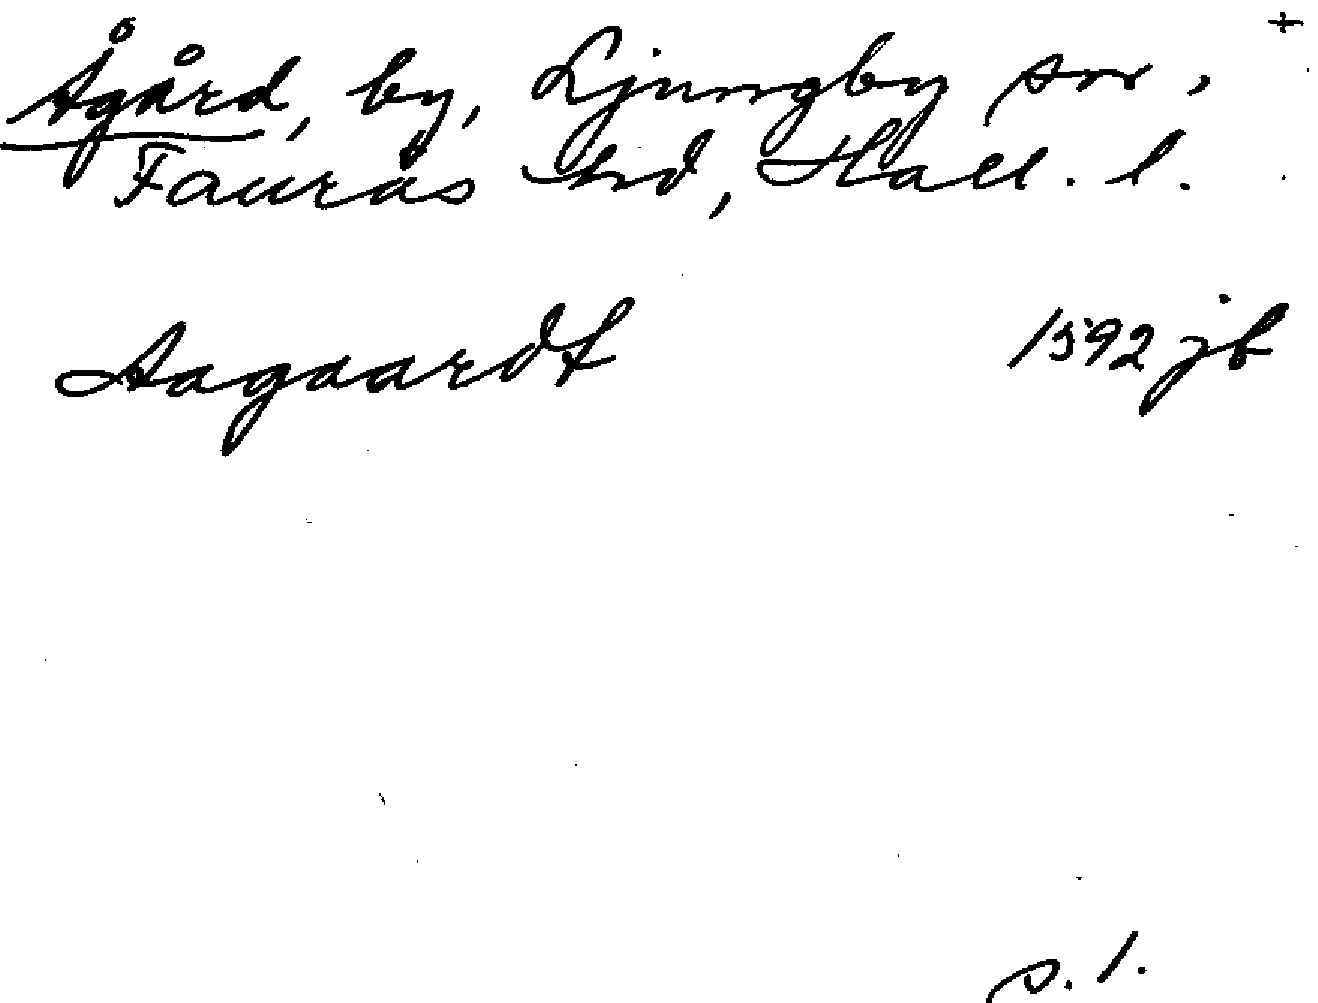 +
Ågård, by, Ljungby sn,
Faurås hd, Hall. l.
Aagaardt 1592 jb
s. 1.